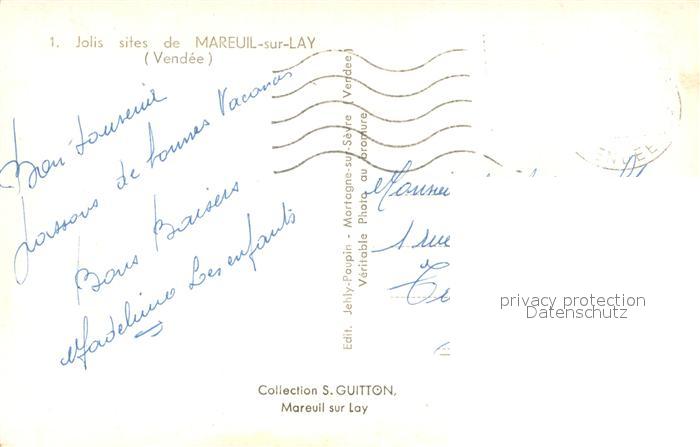 1. Jolis sites de MAREUIL-sur-LAY
(Vendée)
Bon Souvenir
passons de bonnes Vacances
Bons Baisers
Madeleine Les enfants
Edit. Jehly-Poupin - Mortagne-sur-Sèvre (Vendee)
Véritable Photo au bromure
1 rue
privacy protection
Datenschutz
Collection S. GUITTON,
Mareuil sur Lay